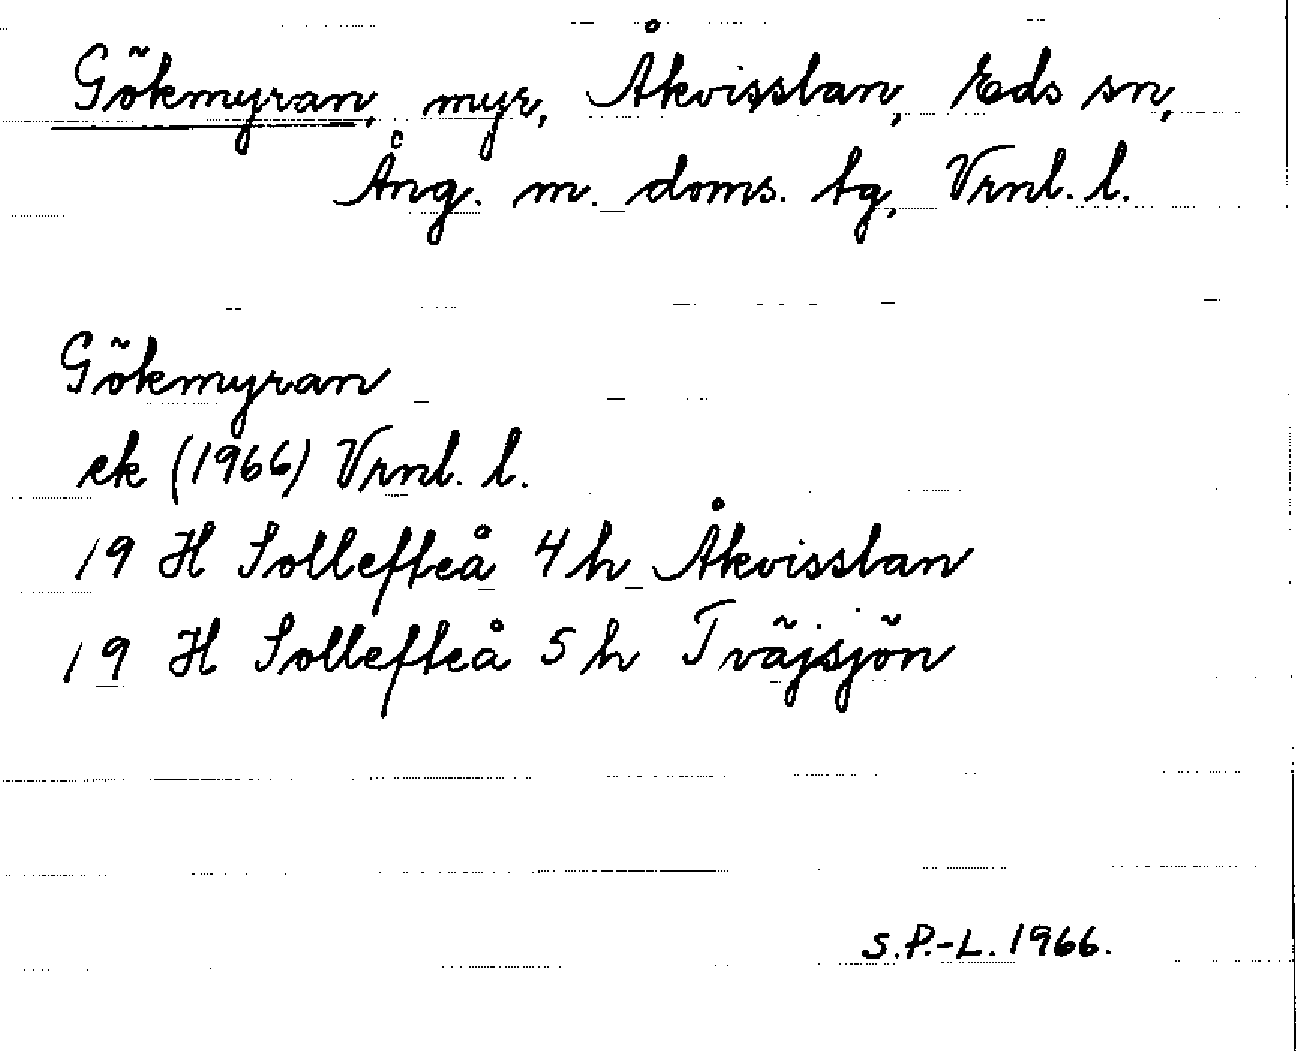 Gökmyran, myr, Åkvisslan, Eds sn,
Ång. m. doms. tg, Vrnl. l.
Gökmyran
ek (1966) Vrnl. l.
19 H Sollefteå 4 h Åkvisslan
19 H Sollefteå 5 h Tväjsjön
S.P.-L. 1966.